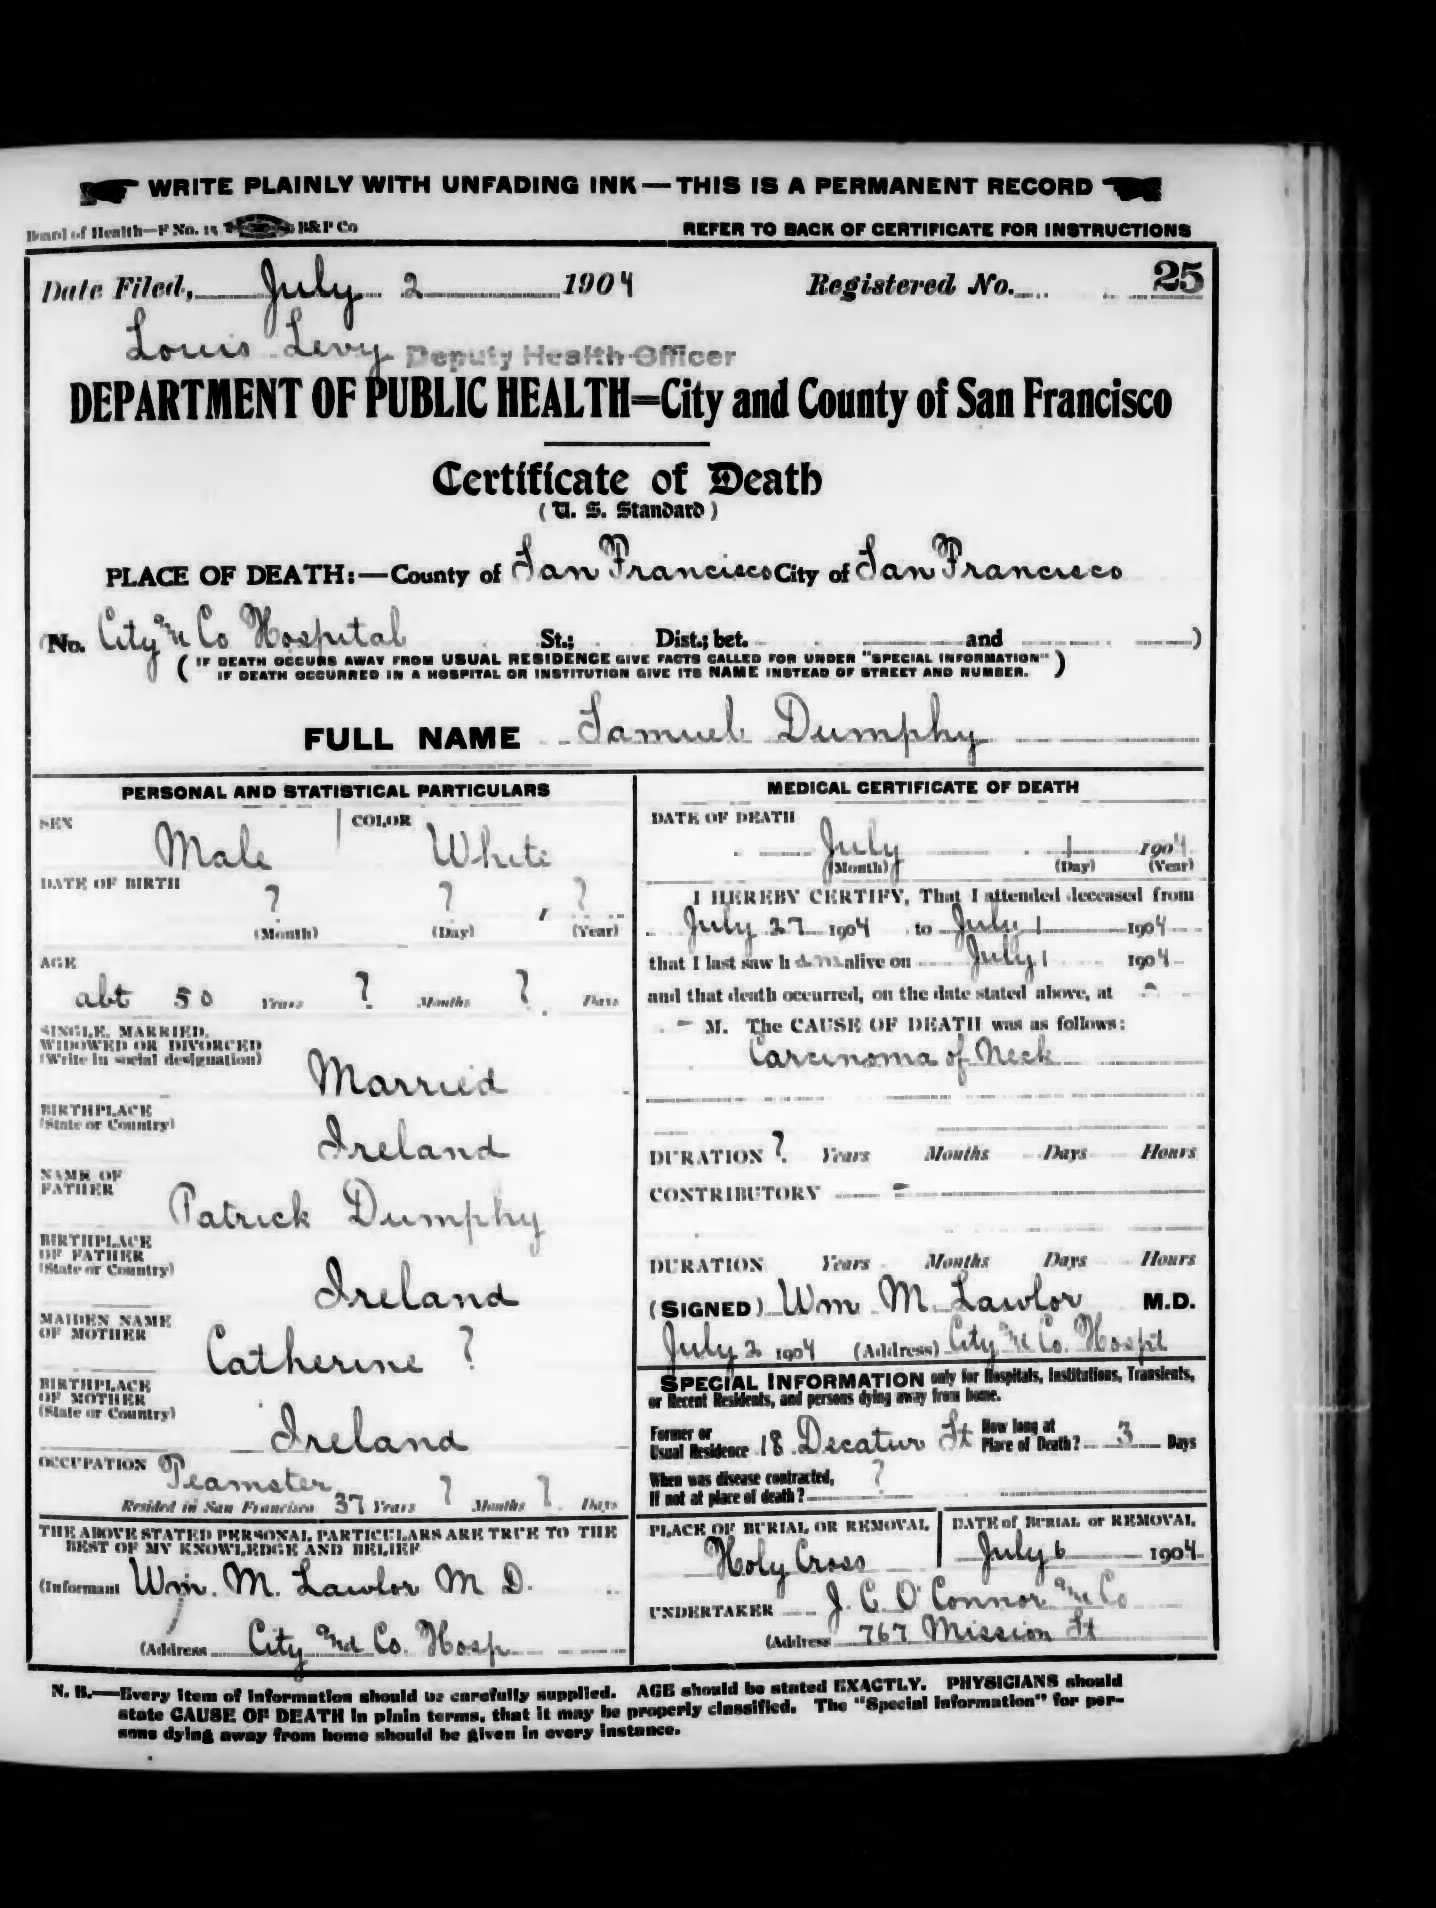 WRITE PLAINLY WITH UNFADING INK—THIS IS A PERMANENT RECORD
Board of Health—F No. 15 B&P Co REFER TO BACK OF CERTIFICATE FOR INSTRUCTIONS
Date Filed, July 2 1904 Registered No. 25
Louis Levy Deputy Health Officer
DEPARTMENT OF PUBLIC HEALTH=City and County of San Francisco
Certificate of Death
( U. S. Standard )
PLACE OF DEATH:—County of San Francisco City of San Francisco
(No. City and Co Hospital St.; Dist.; bet. and )
( IF DEATH OCCURS AWAY FROM USUAL RESIDENCE GIVE FACTS CALLED FOR UNDER "SPECIAL INFORMATION" )
IF DEATH OCCURRED IN A HOSPITAL OR INSTITUTION GIVE ITS NAME INSTEAD OF STREET AND NUMBER.
FULL NAME Samuel Dumphy
PERSONAL AND STATISTICAL PARTICULARS
SEX Male COLOR White
DATE OF BIRTH ? ? , ?
(Month) (Day) (Year)
AGE
abt 50 Years ? Months ? Days
SINGLE, MARRIED,
WIDOWED OR DIVORCED
(Write in social designation)
Married
BIRTHPLACE
(State or Country)
Ireland
NAME OF
FATHER
Patrick Dumphy
BIRTHPLACE
OF FATHER
(State or Country)
Ireland
MAIDEN NAME
OF MOTHER
Catherine ?
BIRTHPLACE
OF MOTHER
(State or Country)
Ireland
OCCUPATION Teamster
Resided in San Francisco 37 Years ? Months ? Days
THE ABOVE STATED PERSONAL PARTICULARS ARE TRUE TO THE
BEST OF MY KNOWLEDGE AND BELIEF
(Informant Wm. M. Lawlor M D.
(Address City and Co. Hosp
MEDICAL CERTIFICATE OF DEATH
DATE OF DEATH
July 1 1904
(Month) (Day) (Year)
I HEREBY CERTIFY, That I attended deceased from
July 27 1904 to July 1 1904
that I last saw h im alive on July 1 1904
and that death occurred, on the date stated above, at -
- M. The CAUSE OF DEATH was as follows:
Carcinoma of Neck
DURATION ? Years Months Days Hours
CONTRIBUTORY -
DURATION Years Months Days Hours
(SIGNED) Wm M. Lawlor M.D.
July 2 1904 (Address) City and Co. Hospt
SPECIAL INFORMATION only for Hospitals, Institutions, Transients,
or Recent Residents, and persons dying away from home.
Former or
Usual Residence 18 Decatur St How long at
Place of Death? 3 Days
When was disease contracted,
If not at place of death? ?
PLACE OF BURIAL OR REMOVAL
Holy Cross
DATE of BURIAL or REMOVAL
July 6 1904
UNDERTAKER J. C. O'Connor and Co
(Address 767 Mission St
N. B.—Every item of information should be carefully supplied. AGE should be stated EXACTLY. PHYSICIANS should
state CAUSE OF DEATH in plain terms, that it may be properly classified. The "Special Information" for per-
sons dying away from home should be given in every instance.